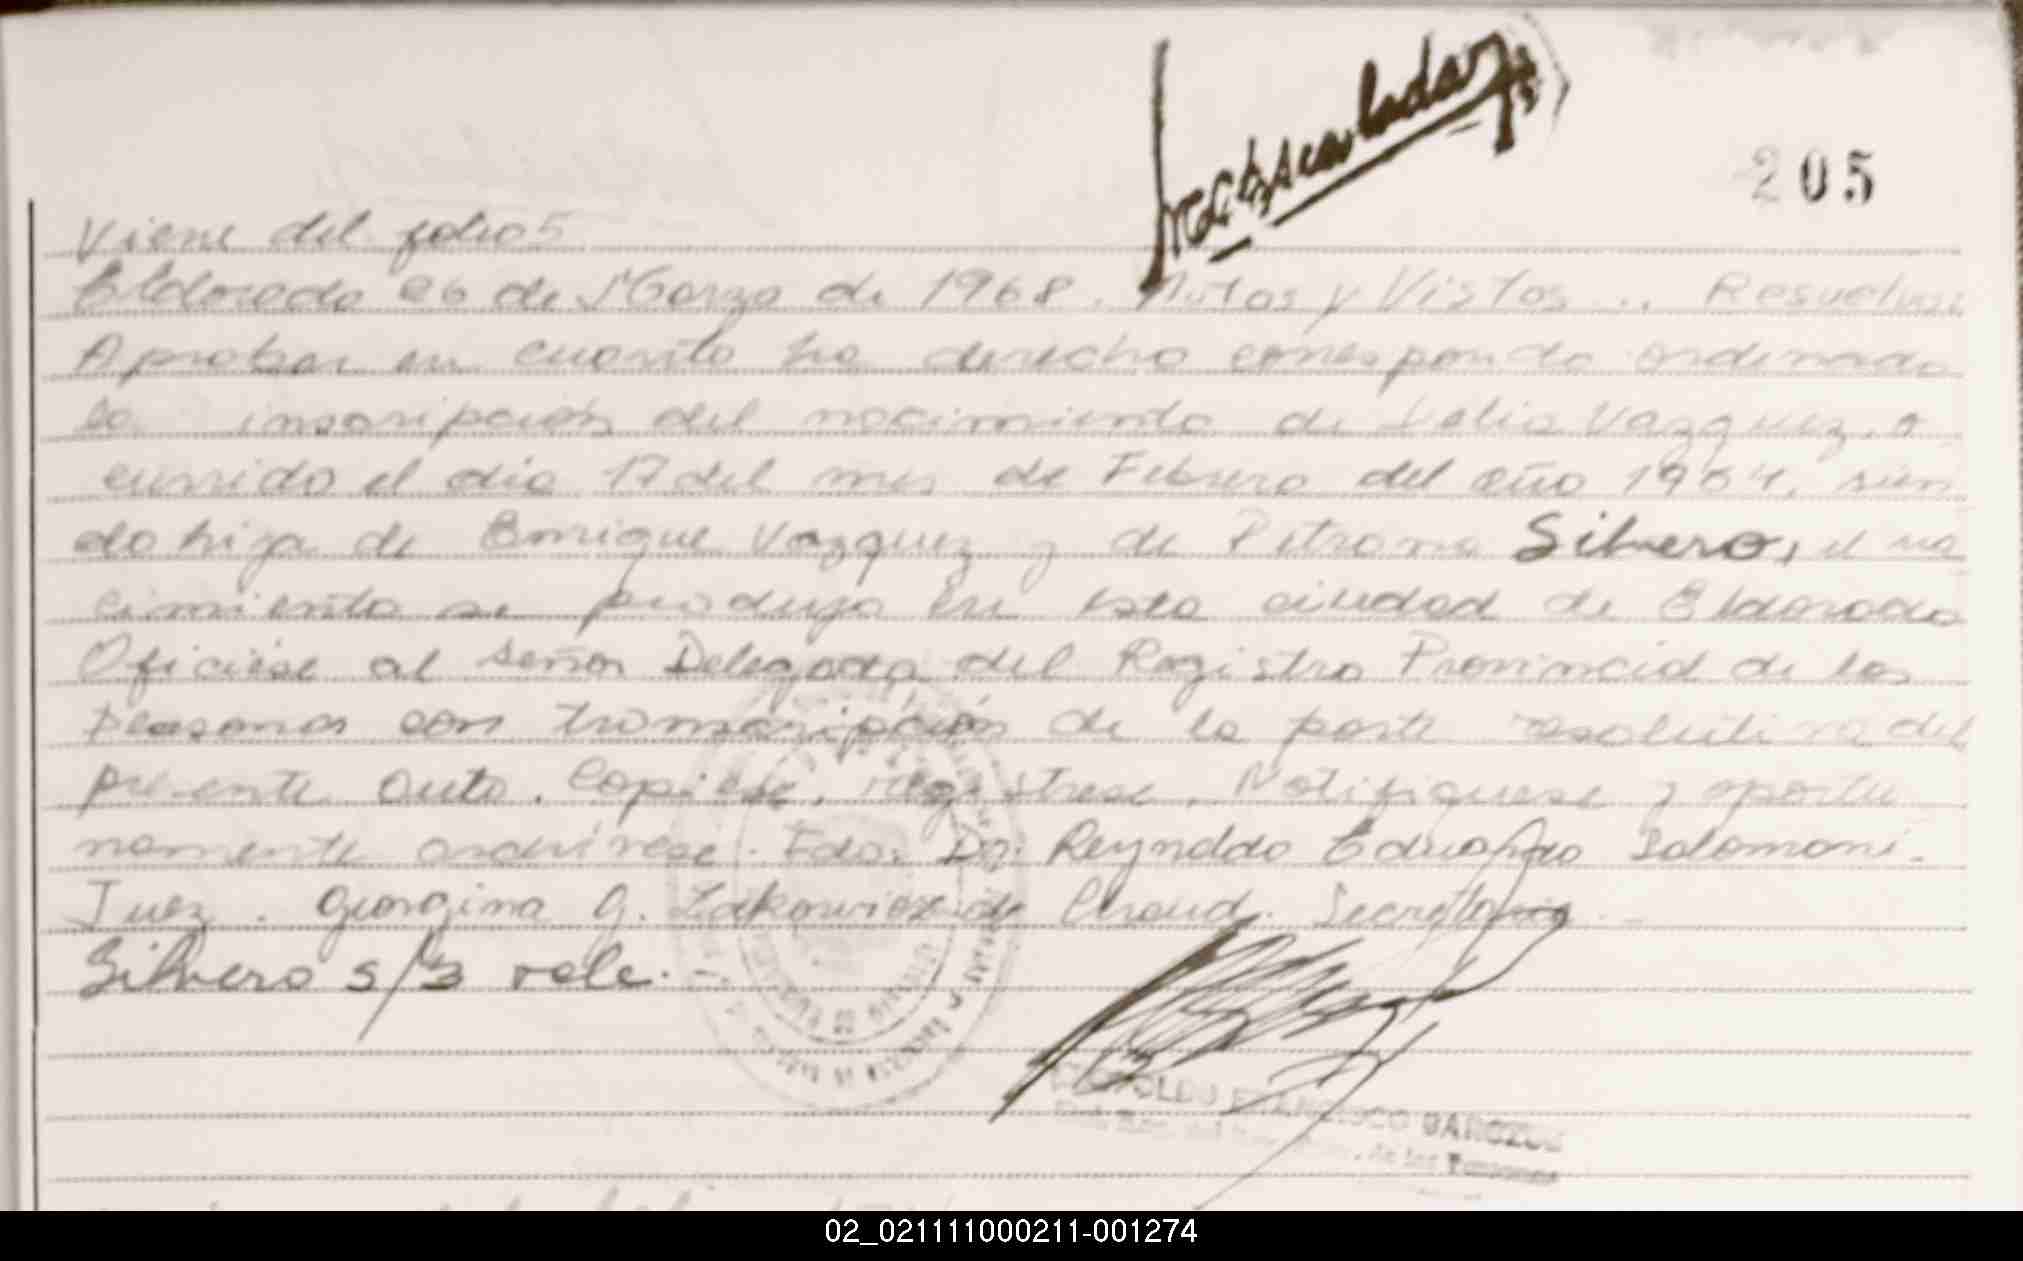 205
Viene del folio 5
Eldorado 26 de Marzo de 1968. Autos y Vistos .. Resuelvo:
Aprobar en cuanto ha derecho corresponda ordenado
la inscripción del nacimiento de Delia Vazquez, o
currido el dia 17 del mes de Febrero del año 1964, sien
do hija de Enrique Vazquez y de Petrona Silvero, el na
cimiento se produjo en esta ciudad de Eldorado
Oficiése al señor Delegado del Registro Provincial de las
personas con transcripción de la parte resolutiva del
presente auto. Copiese, registrese, Notifiquese y oportu
namente archivese. Fdo. Dr. Reynaldo Eduardo Salomoni.
Juez. Georgina G. Zakowicz de Cheroud. Secretaria
Silvero s/r vale.
FRANCISCO
de las Personas
02_021111000211-001274